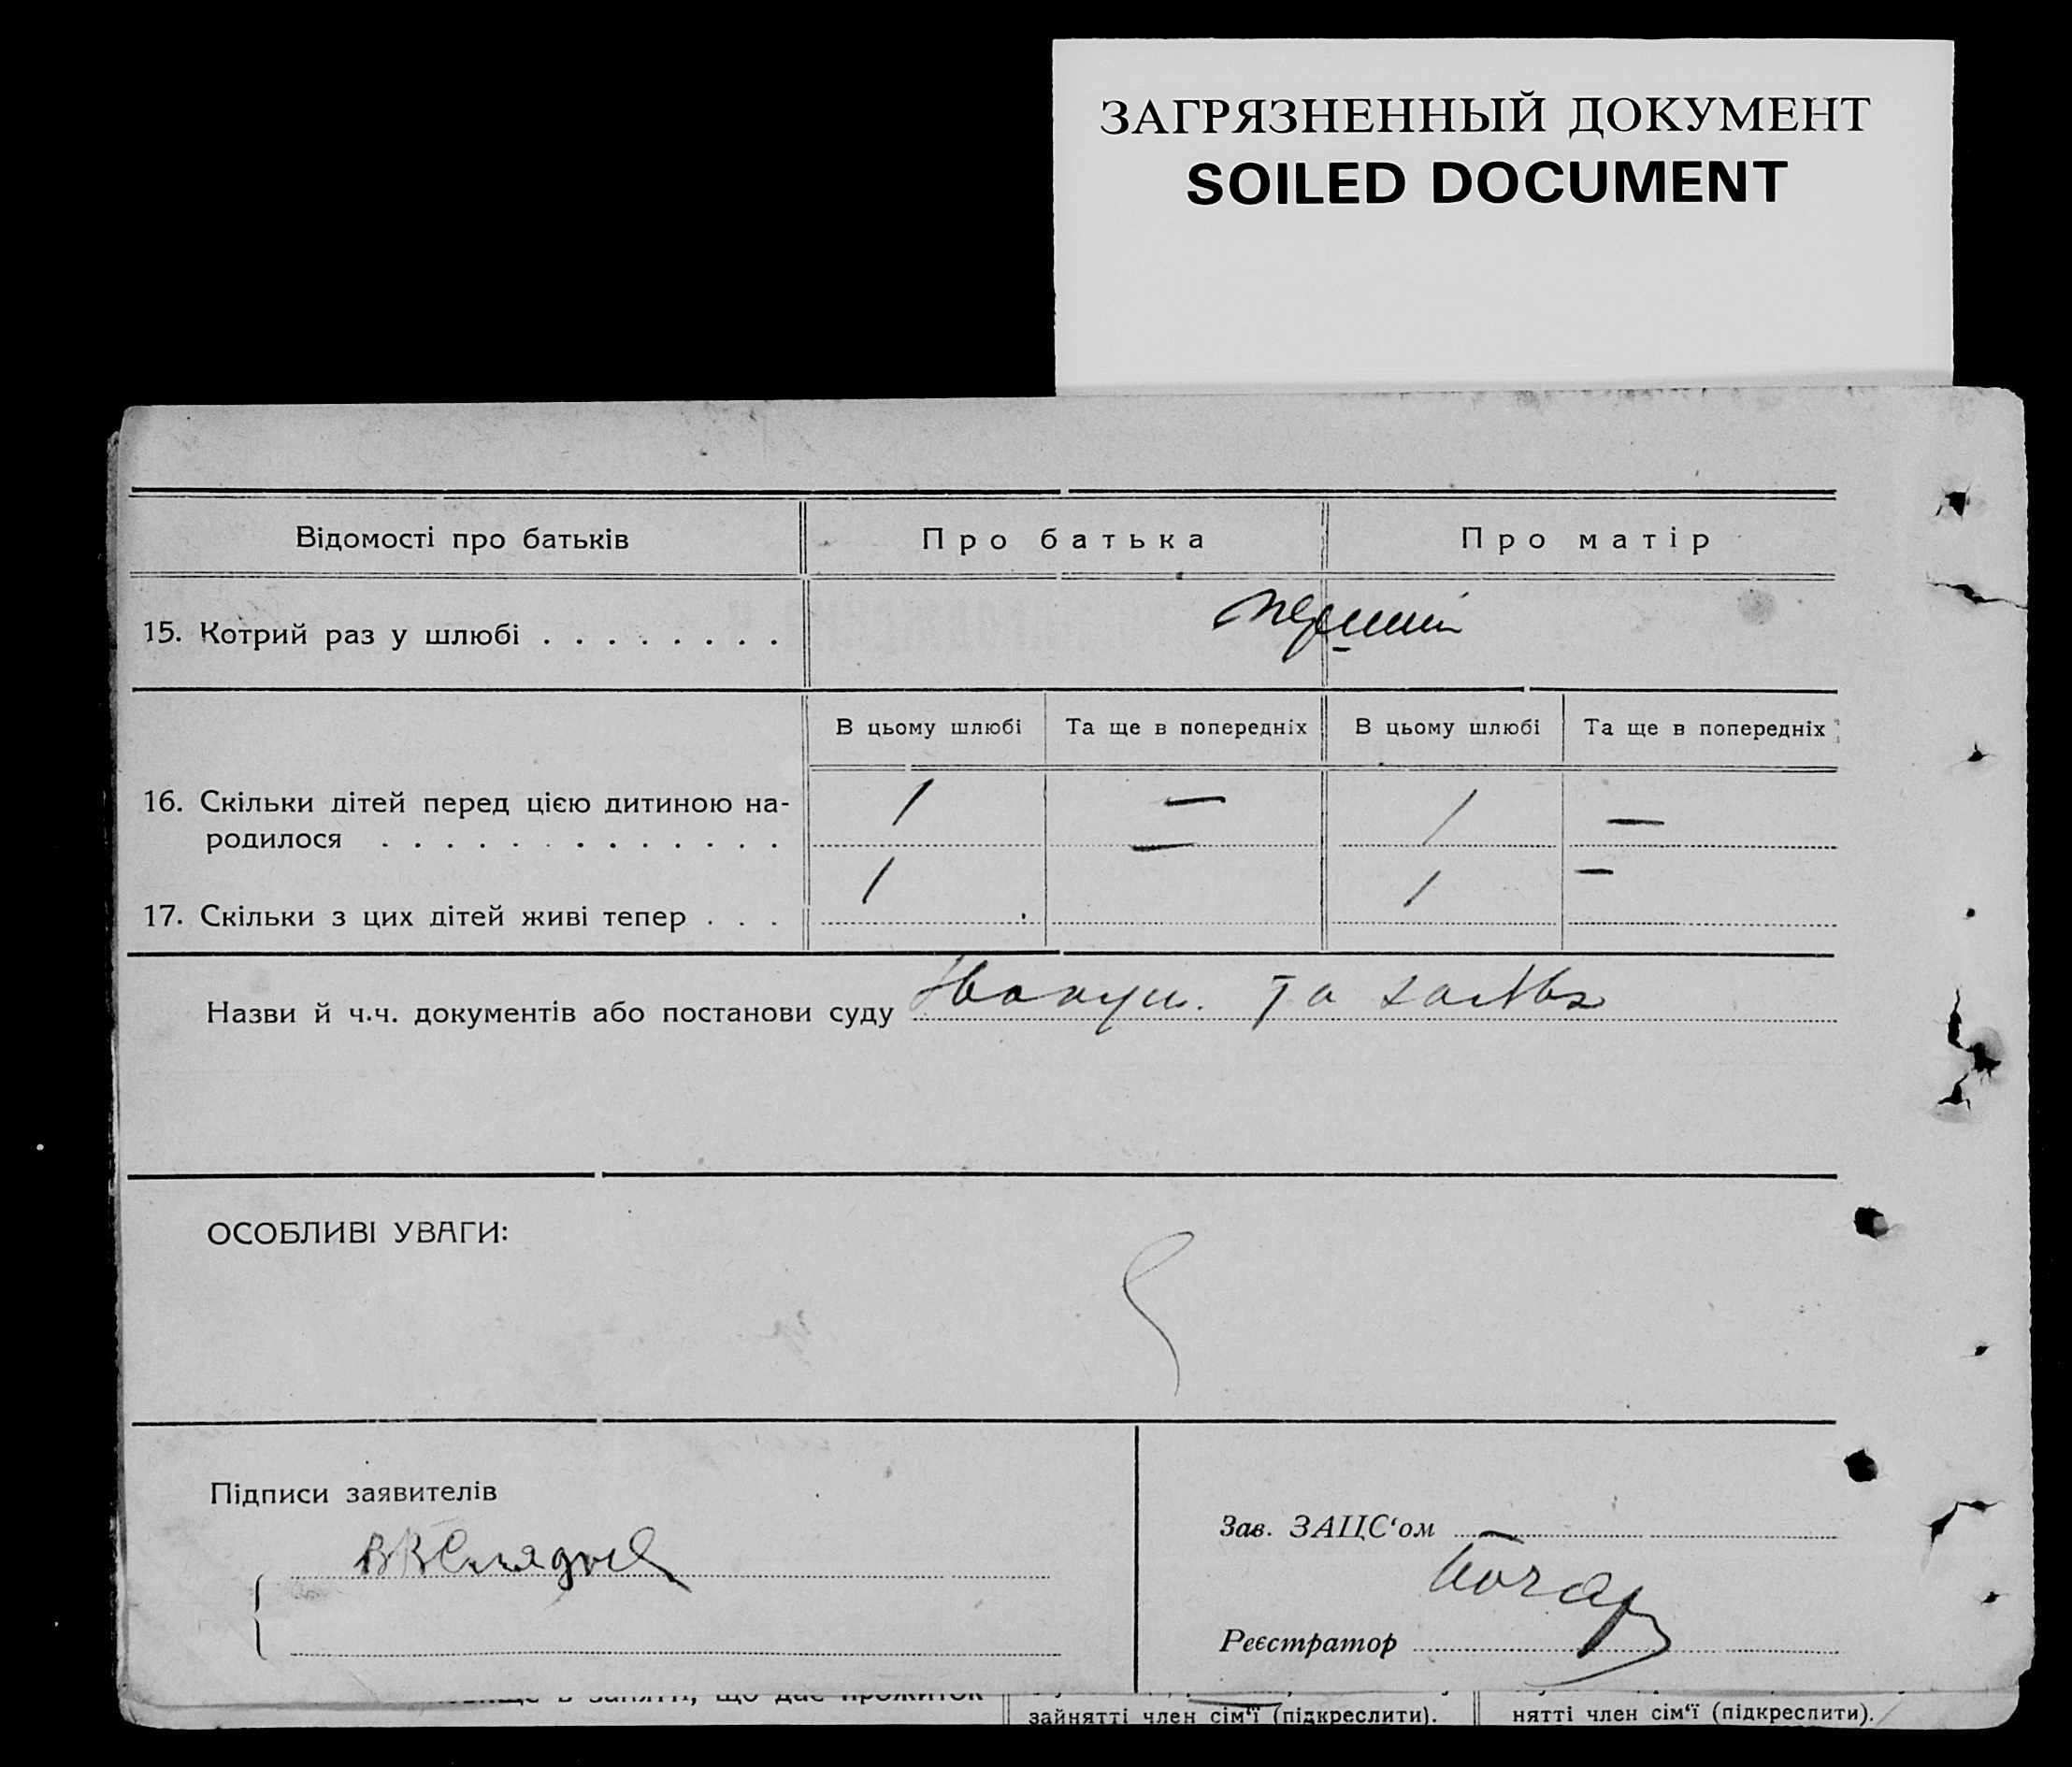 ЗАГРЯЗНЕННЫЙ ДОКУМЕНТ
SOILED DOCUMENT
Відомості про батьків
Про батька
Про матір
15. Котрий раз у шлюбі . . . . . . . .
перший
В цьому шлюбі
Та ще в попередніх
В цьому шлюбі
Та ще в попередніх
16. Скільки дітей перед цією дитиною на-
родилося . . . . . . . . . . . . .
1 — 1 —
17. Скільки з цих дітей живі тепер . . .
1 — 1 —
Назви й ч.ч. документів або постанови суду
та
ОСОБЛИВІ УВАГИ:
Підписи заявителів
Зав. ЗАЦС‘ом
Реєстратор
що дає прожиток
зайнятті член сім‘ї (підкреслити).
нятті член сім‘ї (підкреслити).